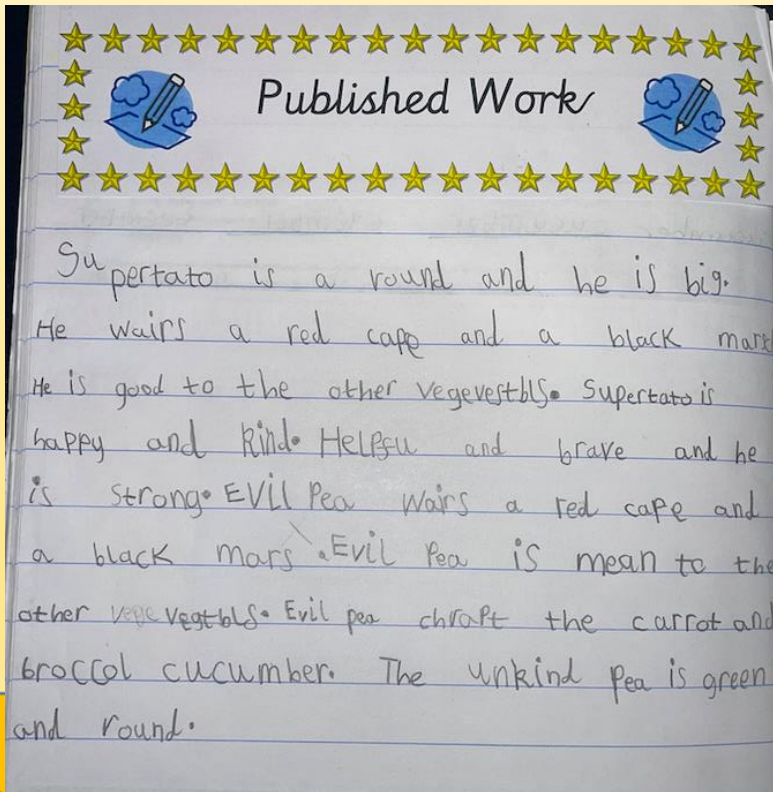 Published Work
Supertato is a round and he is big.
He wairs a red cape and a black mark
He is good to the other vegevestbls. Supertato is
happy and kind. Helpfu and brave and he
is strong. EVil Pea wairs a red cape and
a black mars. Evil Pea is mean to the
other vegtbls. Evil pea chrapt the carrot and
broccol cucumber. The unkind pea is green
and round.